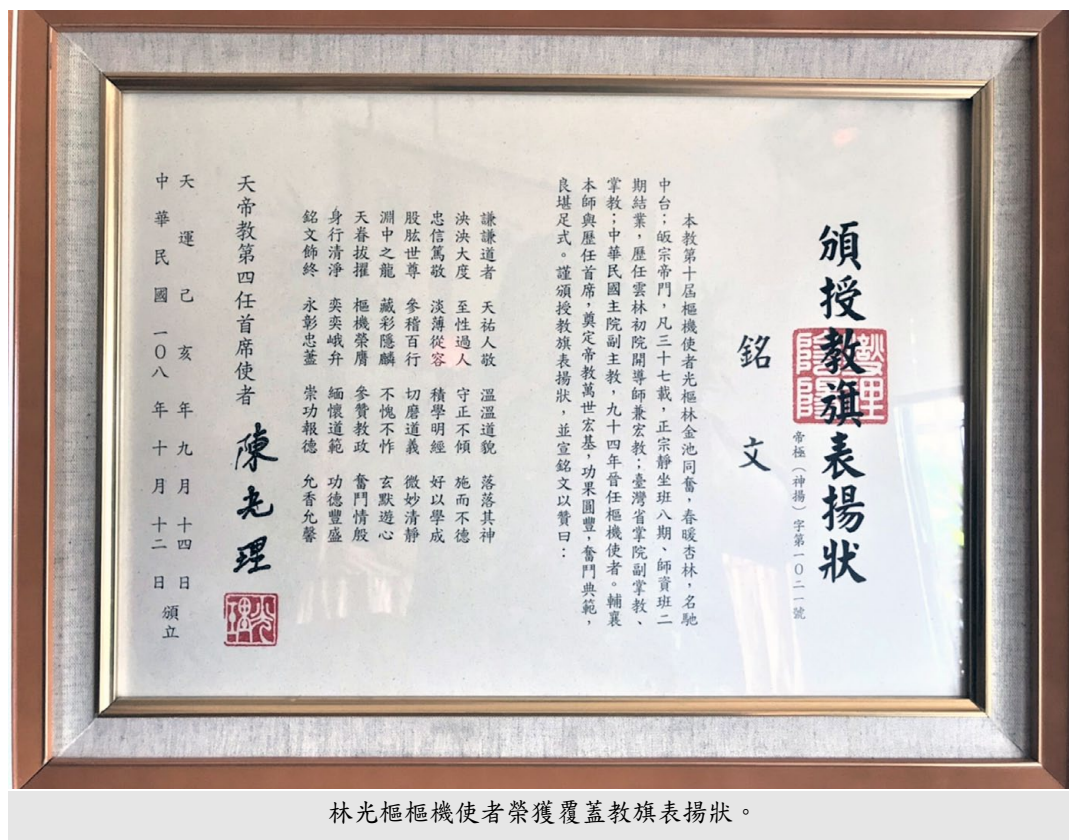 頒授教旗表揚狀
帝極（神揚）字第一０二一號
銘文
本教第十屆樞機使者光樞林金池同奮，春暖杏林，名馳
中台；皈宗帝門，凡三十七載，正宗靜坐班八期、師資班二
期結業，歷任雲林初院開導師兼宏教；臺灣省掌院副掌教、
掌教；中華民國主院副主教，九十四年晉任樞機使者。輔襄
本師與歷任首席，奠定帝教萬世宏基，功果圓豐，奮鬥典範，
良堪足式。謹頒授教旗表揚狀，並宣銘文以贊曰：
謙謙道者 天祐人敬 溫溫道貌 落落其神
泱泱大度 至性過人 守正不傾 施而不德
忠信篤敬 淡薄從容 積學明經 好以學成
股肱世尊 參稽百行 切磨道義 微妙清靜
淵中之龍 藏彩隱麟 不愧不怍 玄默遊心
天眷拔擢 樞機榮膺 參贊教政 奮鬥情殷
身行清淨 奕奕峨弁 緬懷道範 功德豐盛
銘文飾終 永彰忠藎 崇功報德 允香允馨
天帝教第四任首席使者 陳光理
光理
天運己亥年九月十四日
中華民國一０八年十月十二日 頒立
林光樞樞機使者榮獲覆蓋教旗表揚狀。